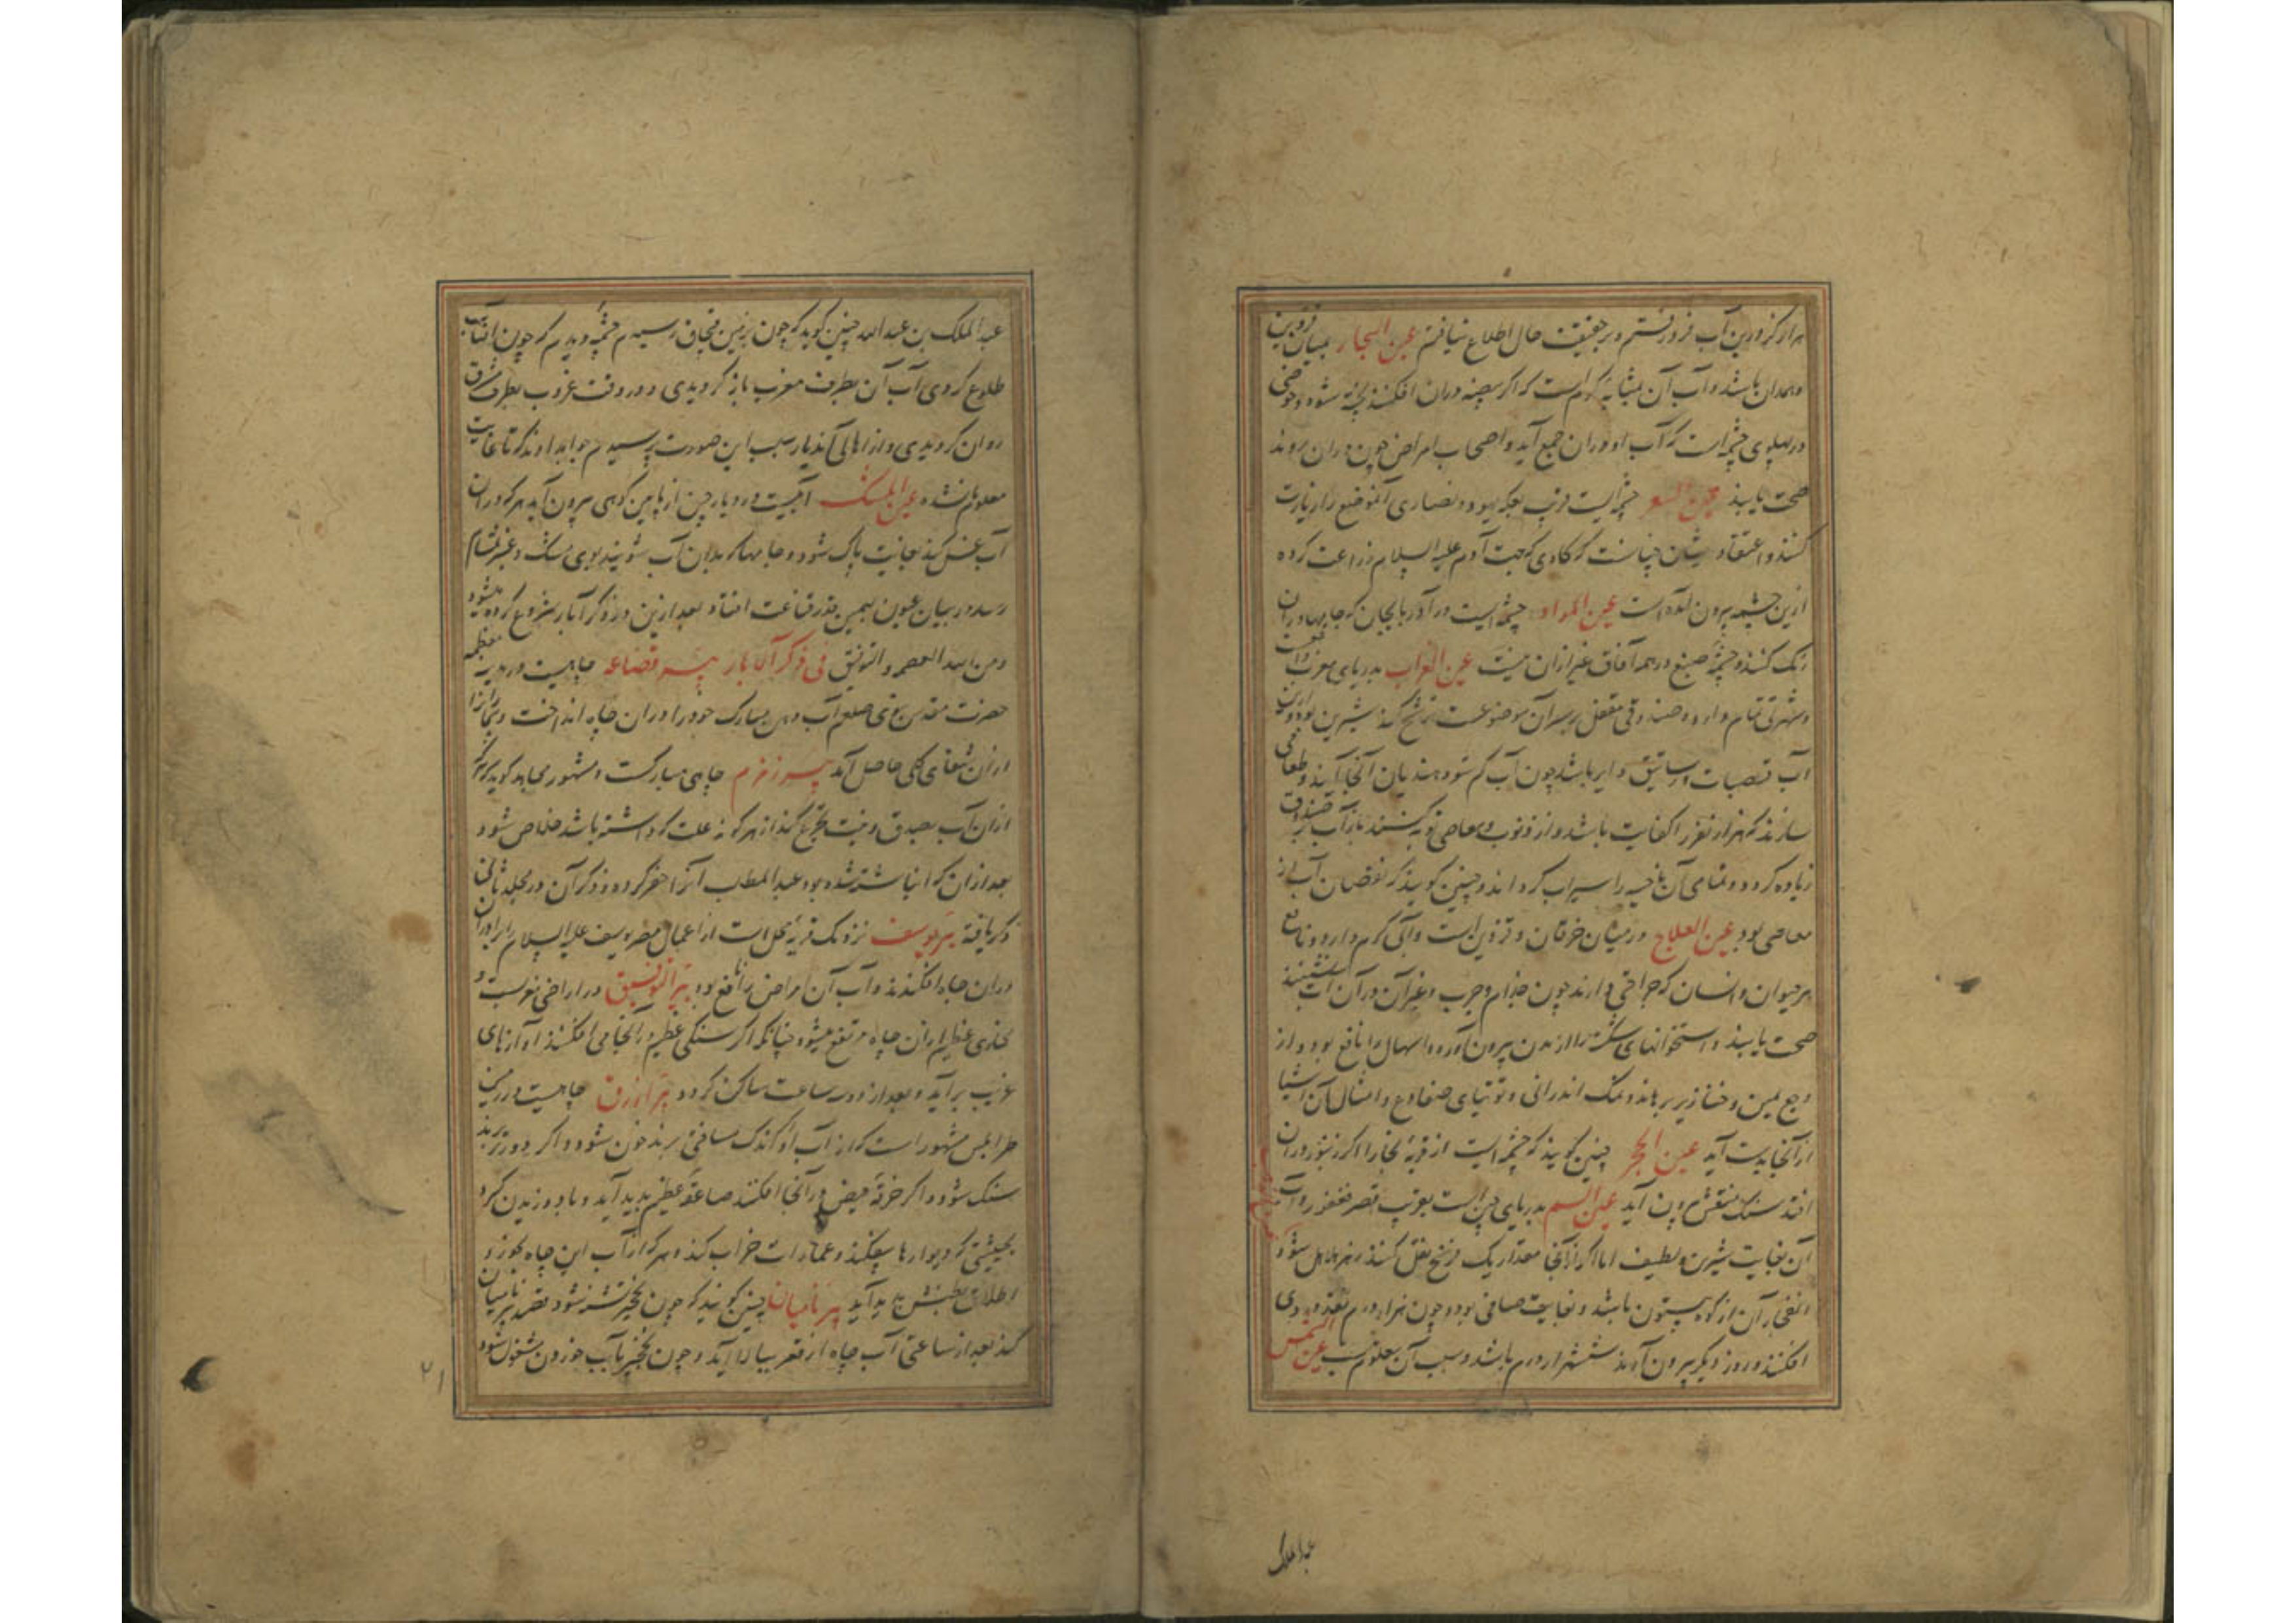 هزار گز درین آب فرو رفتم و بر حقیقت حال اطلاع نیافتم عین البحار بمیان قزوین
و همدان باشد و آب آن بمثابه گرم است که اگر بیضه دران افکنند پخته شود و حوضی
در پهلوی چشمه است که آب او دران جمع آید و اصحاب امراض چون دران روند
صحت یابند چشمه ایست قرب بعکه یهود و نصاری آنموضع را زیارت
کنند و اعتقاد ایشان چنانست که گاوی که جهت آدم علیه السلام زراعت کرده
ازین چشمه بیرون آمده است عین المراد چشمه ایست در آذربایجان که جامها دران
رنک کنند و چشمه صبغ در همه آفاق غیر ازان نیست عین الغراب بدریای مغرب
و شهرتی تمام دارد و صندوقی مقفل بر سر آن موضوعست
آب قصبات و رساتیق دایر باشد چون آب کم شود هندیان آنجا آیند و طعامی
سازند که هزار نفر را کفایت باشد و از ذنوب و معاصی توبه کنند باز آب صندوق
زیاده گردد و تمامی آن ناحیه را سیراب گرداند و چنین گویند که نقصان آب از
معاصی بود عین العلاج در میان خرقان و قزوین است و آبی گرم دارد و نافع
هر حیوان و انسان که جراحتی دارند چون جذام و جرب و غیر آن در آن آب نشینند
صحت یابند و استخوانهای شکسته را از بدن بیرون آورد و اسهال را نافع بود و از
وجع و خنازیر برهاند و نمک اندرانی و توتیای ضفادع و امثال آن اشیا
از آنجا بدست آید عین الحجر چنین گویند که چشمه ایست از قریه بخارا اگر زنبور دران
افتد سنک منقش بیرون آید عین السم بدریای چین است بقرب قصر فغفور و آب
آن بغایت شیرین و لطیف اما اگر از آنجا مقدار یک فرسخ نقل کنند زهر هلاهل شود
انفجار آن از کوه بیستون باشد و بغایت صافی بود و چون هزار درم نقد در وی
افکنند و روز دیگر بیرون آرند ششهزار درم باشد و سبب آن معلوم نیست عین الشمس
عبد الملک
عبد الملک بن عبد الله چنین گوید که چون بزمین قبچاق رسیدم چشمه دیدم که چون افتاب
طلوع کردی آب آن بطرف مغرب باز گردیدی و در وقت غروب بطرف مشرق
روان گردیدی و از اهالی آندیار سبب این صورت پرسیدم جواب دادند که تا غایت
معلوم نشده عین المسک آبیست در دیار چین از پایین کوهی بیرون آید هر که دران
آب غسل کند بغایت پاک شود و جامها که بدان آب شویند بوی مشک و عنبر بمشام
رسد در بیان عیون بهمین قدر قناعت افتاد بعد ازین در ذکر آبار شروع کرده میشود
ومن الله العصمه والتوفیق فی ذکر الآبار بئر قضاعه چاهیست در مدینه معظمه
حضرت مقدس نبوی صلعم آب دهن مبارک خود را دران چاه انداخت و بیمار را
ازان شفای کلی حاصل آید بیر زمزم چاهی مبارکست و مشهور مجاهد گوید که هر که
ازان آب بصدق نیت تجرع کند از هر گونه علت که داشته باشد خلاص شود
بعد ازان که انباشته شده بود عبد المطلب آنرا حفر کرد و ذکر آن در مجلد ثانی
ذکر یافته بئر یوسف نزدیک قریه است از اعمال مصر یوسف علیه السلام را برادران
دران چاه افکندند و آب آن امراض را نافع بود بئر التوفیق در اراضی مغربست و
بخاری عظیم ازان چاه مرتفع میشود چنانکه اگر سنگی عظیم در آنجا می افکنند آوازهای
غریب برآید و بعد از دو سه ساعت ساکن گردد بئر ازرق چاهیست در زمین
طرابلس مشهور است که از آب او اگر اندک مسافتی برند خون شود و اگر دورتر برند
سنک شود و اگر خرقه حیض در آنجا افکنند صاعقه عظیم پدید آید و باد وزیدن گیرد
بحیثیتی که دیوارها بیفکند و عمارات خراب کند و هر که از آب این چاه بخورد
اطلاق بطنش پدید آید بیر بامیان چنین گویند که چون نخجیر تشنه شود بقصد بئر بامیان
کند بعد از ساعتی آب چاه از قعر ببالا آید و چون نخجیر بآب خوردن مشغول شود
۲۱